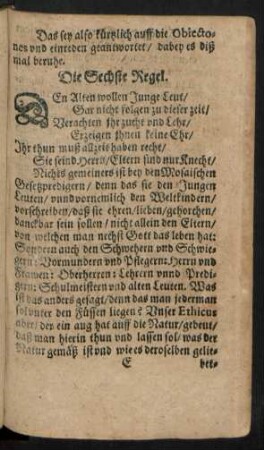 Das sey also kürtzlich auff die Obiectio-
nes vnd einreden geantwortet / dabey es diß
mal beruhe.
Die Sechste Regel.
DEn Alten wollen Junge Leut /
Gar nicht folgen zu dieser zeit /
Verachten jhr zucht vnd Lehr /
Erzeigen jhnen keine Ehr /
Ihr thun muß allzeit haben recht /
Sie seind Herrn / Eltern sind nur Knecht /
Nichts gemeiners ist bey den Mosaischen
Gesetzpredigern / denn das sie den Jungen
Leuten / vnnd vornemlich den Weltkindern /
vorschreiben / daß sie ehren / lieben / gehorchen /
danckbar sein sollen / nicht allein den Eltern /
von welchen man nechst Gott das leben hat:
Sondern auch den Schwehern vnd Schwie-
gern: Vormundern vnd Pflegern: Herrn vnd
Frawen: Oberherren: Lehrern vnnd Predi-
gern: Schulmeistern vnd alten Leuten. Was
ist das anders gesagt / denn das man jederman
sol vnter den Füssen liegen? Vnser Ethicus
aber / der ein aug hat auff die Natur / gebeut /
daß man hierin thun vnd lassen sol / was der
Natur gemäß ist vnd wie es deroselben gelie-
E bet-